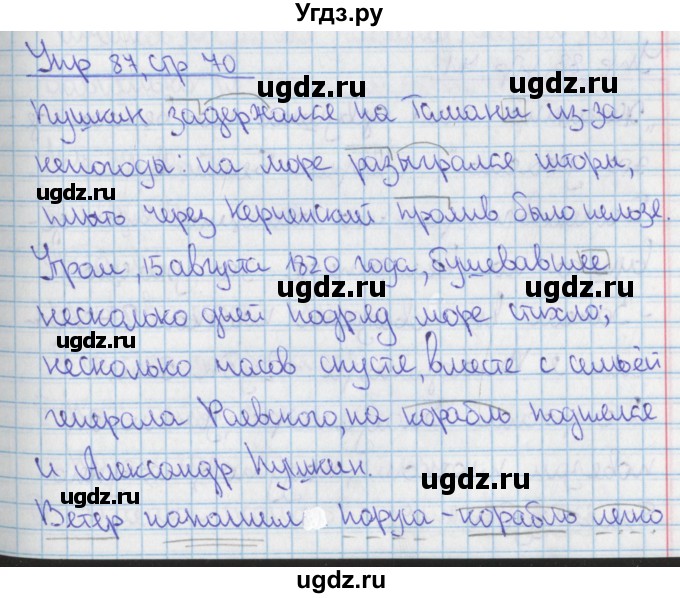 Угдз.ру
Упр 87, стр 70
Пушкин задержался на Тамани из-за
непогоды: на море разыгрался шторм,
плыть через Керченский пролив было нельзя.
Утром, 15 августа 1820 года, бушевавшее
несколько дней подряд море стихло;
несколько часов спустя, вместе с семьёй
генерала Раевского, на корабль поднялся
и Александр Пушкин.
Ветер наполнил паруса - корабль легко
ugdz.ru ugdz.ru
ugdz.ru
ugdz.ru ugdz.ru
ugdz.ru ugdz.ru
ugdz.ru
ugdz.ru